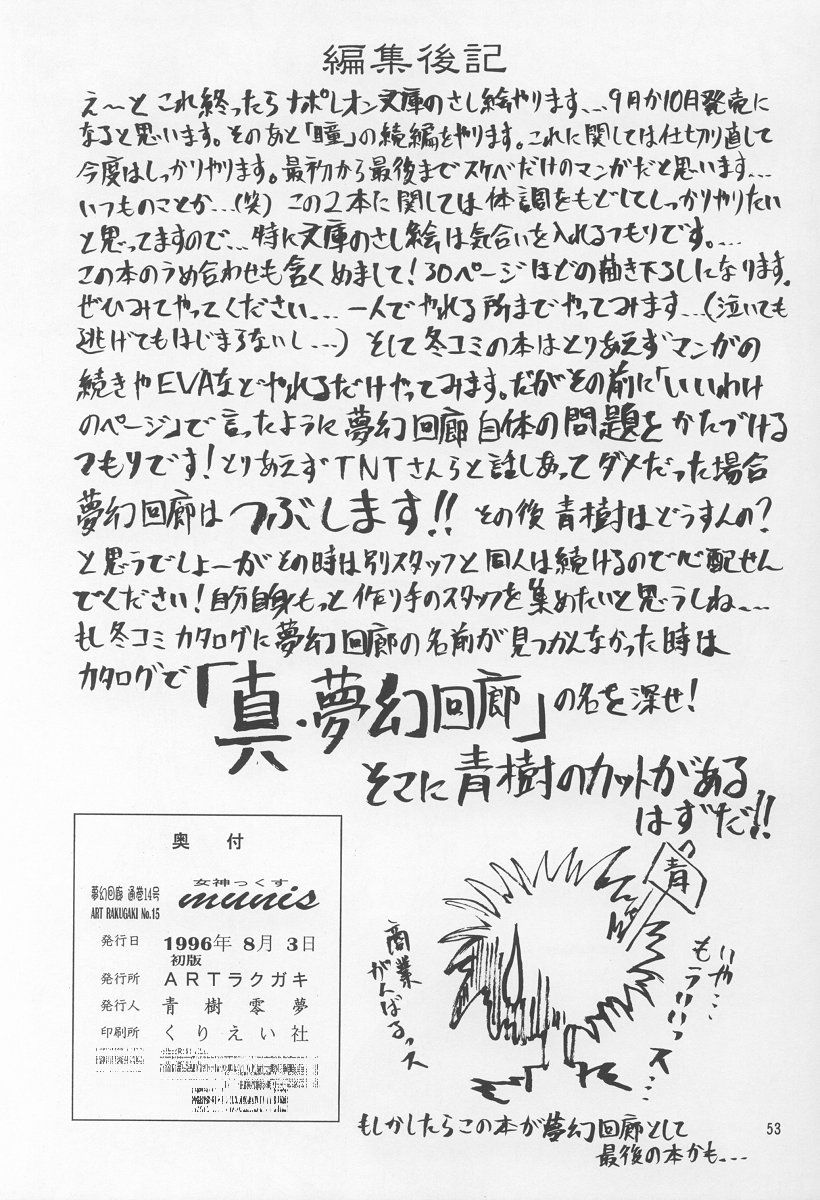 編集後記
え〜と これ終ったらナポレオン文庫のさし絵やります...9月か10月発売に
なると思います。そのあと「瞳」の続編をやります。これに関しては仕切り直して
今度はしっかりやります。最初から最後までスケベだけのマンガだと思います...
いつものことか...(笑) この2本に関しては体調をもどしてしっかりやりたい
と思ってますので...特に文庫のさし絵は気合いを入れるつもりです。...
この本のうめ合わせも含くめまして!30ページほどの描き下ろしになります。
ぜひみてやってください...一人でやれる所までやってみます...(泣いても
逃げてもはじまらないし...) そして冬コミの本はとりあえずマンガの
続きやEVAなどやれるだけやってみます。だがその前に「いいわけ
のページ」で言ったように夢幻回廊自体の問題をかたづける
つもりです!とりあえずTNTさんらと話しあってダメだった場合
夢幻回廊はつぶします!! その後青樹はどうすんの?
と思うでしょーがその時は別スタッフと同人は続けるので心配せん
でください!自分自身もっと作り手のスタッフを集めたいと思うしね...
もし冬コミカタログに夢幻回廊の名前が見つかんなかった時は
カタログで「真・夢幻回廊」の名を深せ!
そこに青樹のカットがある
はずだ!!
奥付
夢幻回廊 通巻14号
ART RAKUGAKI No.15
女神っくす
munis
発行日 1996年 8月 3日
初版
発行所 ARTラクガキ
発行人 青樹零夢
印刷所 くりえい社
青
商業
がんばるっス
いや...
もういいっス...
もしかしたらこの本が夢幻回廊として
最後の本かも...
53